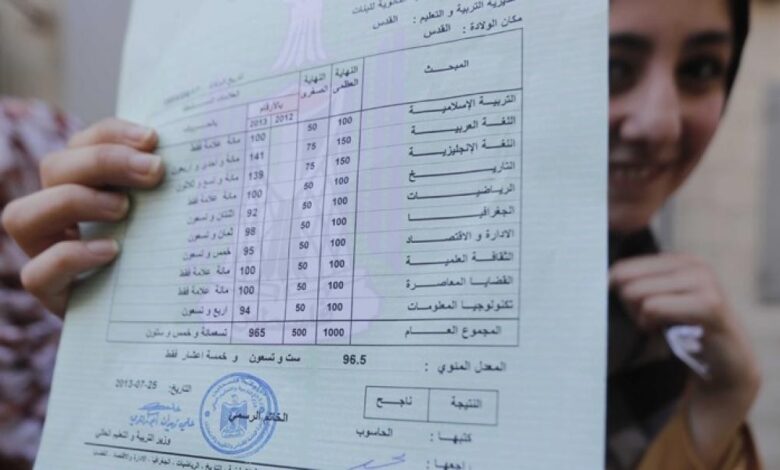 مديرية التربية و التعليم : القدس
مكان الولادة : القدس
المبحث النهاية العظمى النهاية الصغرى
بالأرقام
2012 2013
التربية الإسلامية 100 50 100 مائة علامة فقط
اللغة العربية 150 75 141 مائة و احدى و اربعون
اللغة الإنجليزية 150 75 139 مائة و تسع و ثلاثون
التاريخ 100 50 100 مائة علامة فقط
الرياضيات 100 50 92 اثنتان و تسعون
الجغرافيا 100 50 98 ثمان و تسعون
الادارة و الاقتصاد 100 50 95 خمس و تسعون
الثقافة العلمية 100 50 100 مائة علامة فقط
القضايا المعاصرة 100 50 100 مائة علامة فقط
تكنولوجيا المعلومات 100 50 94 اربع و تسعون
المجموع العام 1000 500 965 تسعمائة و خمس و ستون
المعدل المئوي : 96.5 ست و تسعون و خمسة اعشار فقط
النتيجة ناجح
التاريخ: 25-07-2013
الخاتم الرسمي
كتبها : الحاسوب
وزير التربية و التعليم العالي
راجعها :